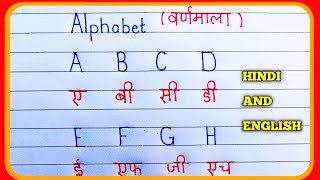 Alphabet (वर्णमाला)
A B C D
ए बी सी डी
E F G H
ई एफ जी एच
HINDI
AND
ENGLISH